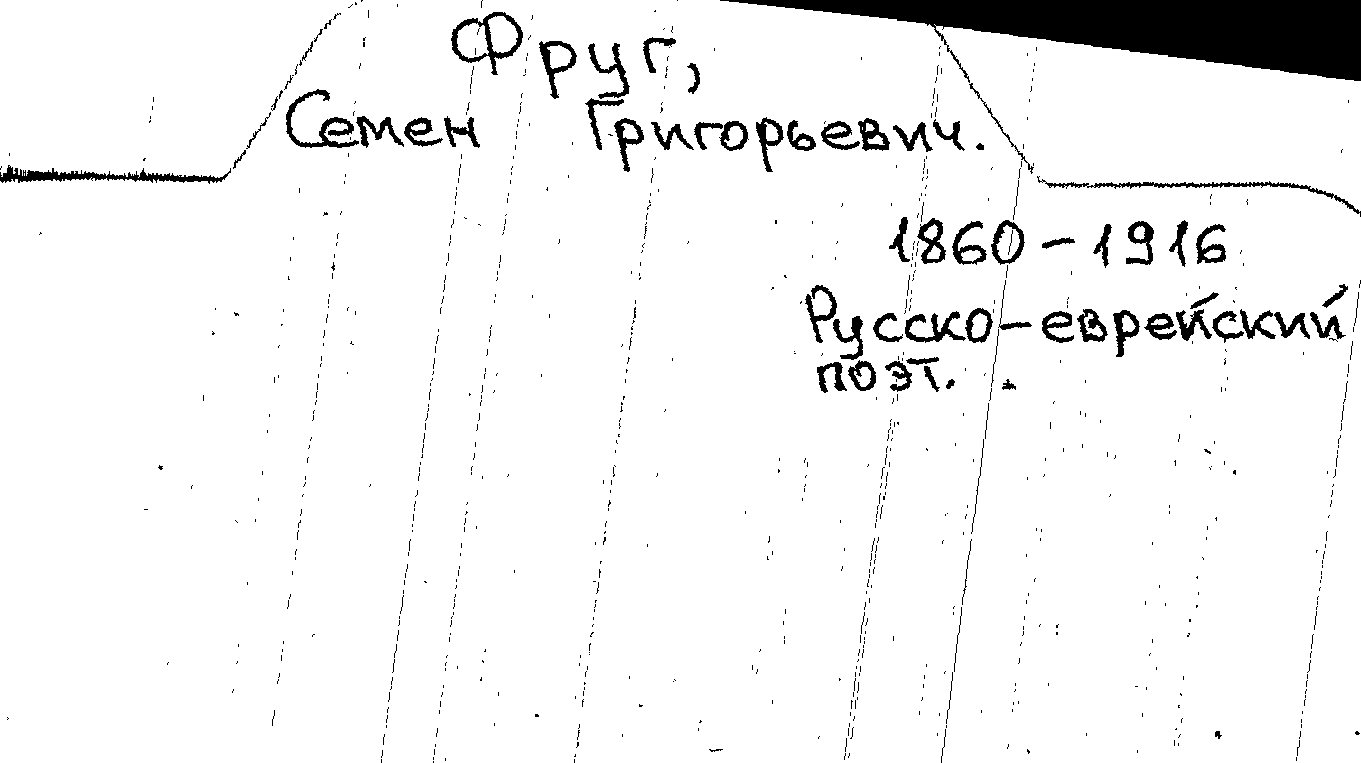 Фруг,
Семен Григорьевич.
1860 – 1916
Русско – еврейский
поэт.